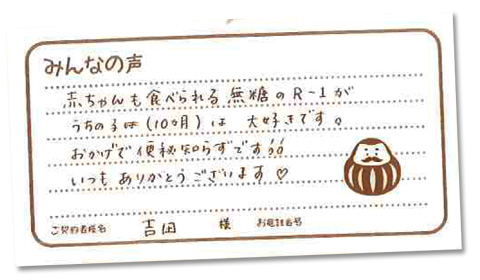 みんなの声
赤ちゃんも食べられる 無糖のR-1が
うちの子は(10ヵ月)は 大好きです。
おかげで便秘知らずです!!
いつもありがとうございます♡
ご契約者様名 吉田 様 お電話番号